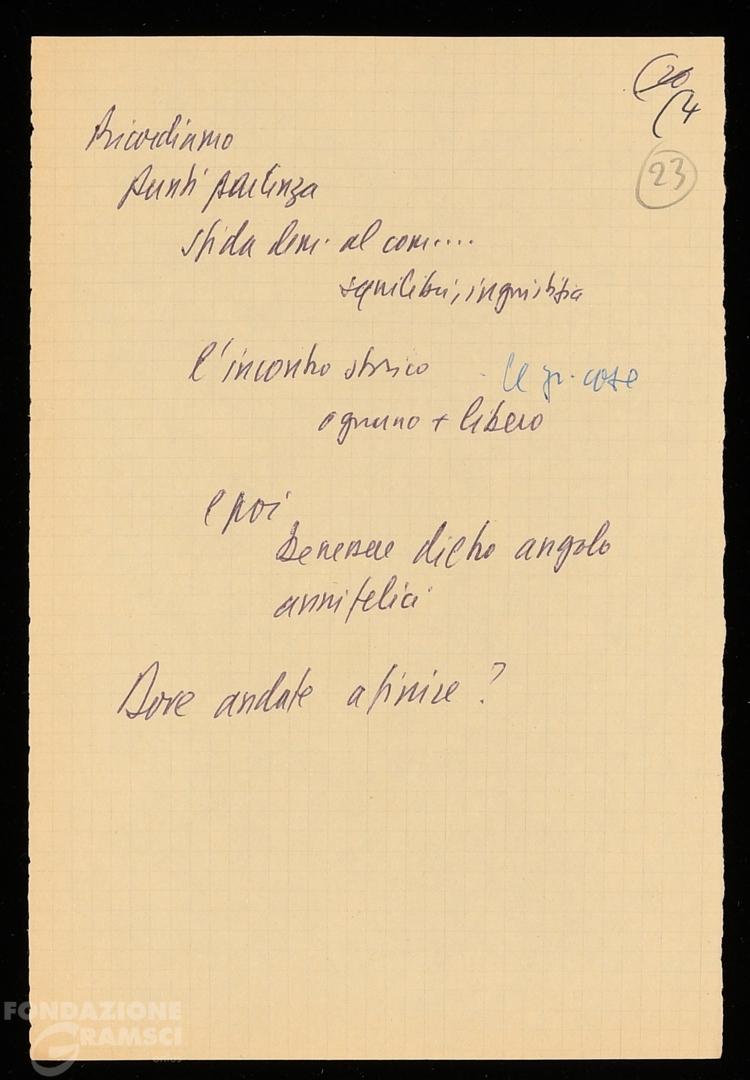 (20
(4
23
Ricordiamo
punti partenza
sfida dem. al com....
squilibri, ingiustizia
l'incontro storico - le gr. cose
ognuno + libero
e poi
Benessere dietro angolo
anni felici
Dove andate a finire?
FONDAZIONE
GRAMSCI
onlus